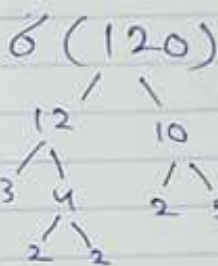 6 (120)
12 10
3 4 2
2 2